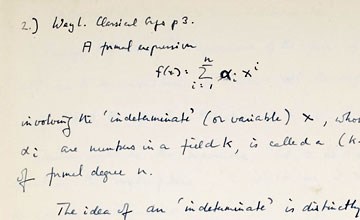 2.) Weyl. Classical Gps p 3.
A formal expression
f(x) = ∑ⁿᵢ₌₁ αᵢ xⁱ
involving the 'indeterminate' (or variable) x, whos
αᵢ are numbers in a field k, is called a (k-
of formal degree n.
The idea of an 'indeterminate' is distinctly